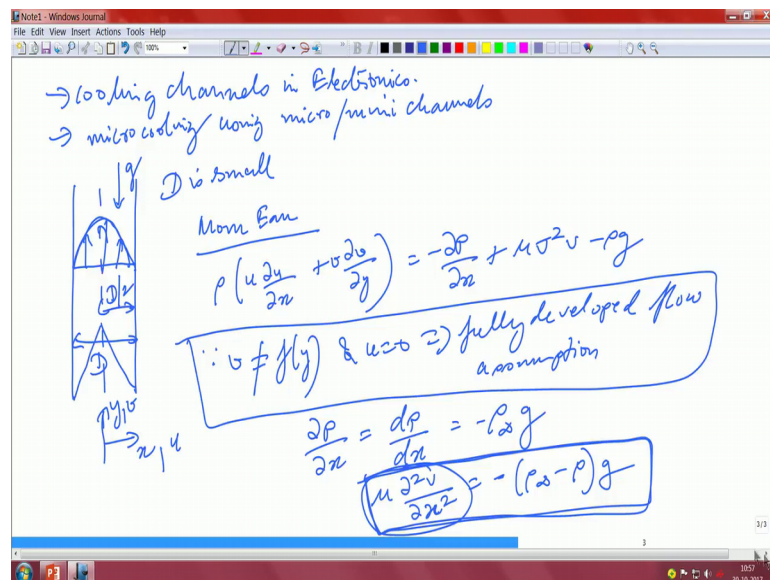 Note1 - Windows Journal
File Edit View Insert Actions Tools Help
100%
→ cooling channels in Electronics.
→ microcooling using micro/mini channels
g
D is small
Mom Eqn
ρ(u ∂v/∂x + v ∂v/∂y) = -∂P/∂x + μ∇²v - ρg
D/2
∵ v ≠ f(y) & u=0 ⇒ fully developed flow
assumption
D
y,v
x,u
∂P/∂x = dP/dx = -ρ∞ g
μ ∂²v/∂x² = -(ρ∞ - ρ)g
3/3
3
10:57
30-10-2017